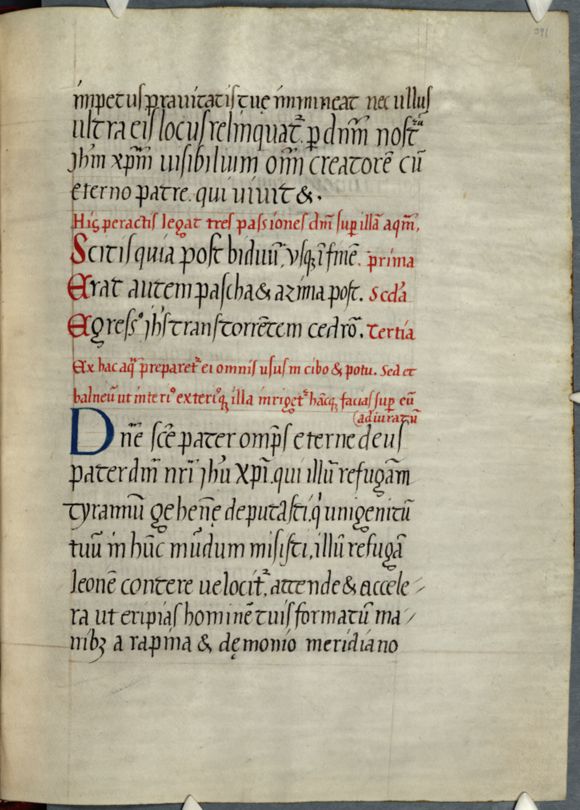 impetus prauitatis tuę immineat nec ullus
ultra eis locus relinquat᷑. p̱ dn̄m nost᷑ꝝ
jhm̄ xp̄m uisibilium om̄ creatorē cū
eterno patre. qui uiuit &.
His peractis legat tres passiones dn̄i sup̱ illā aqm̄.
Scitis quia post biduū, usq; ī finē. prima
Erat autem pascha & azima post. Scd̄a
Egress᷒ jhs̄ trans torrētem cedrō. Tertia
Ex hac aq̄ preparet᷑ ei omnis usus in cibo & potu. Sed et
balneū ut interi᷒ exteri᷒q; illa inriget᷑ hācq; facias sup̱ eū
adiuratū
Dn̄e sc̄e pater omp̄s eterne deus
pater dn̄i nr̄i jhū xp̄i. qui illū refugām
tyrannū gehenę deputasti, q' unigenitū
tuū in hūc mūdum misisti, illū refugā
leonē contere uelocit᷑, attende & accele-
ra ut eripias hominē tuis formatū ma-
nibꝫ a rapina & dęmonio meridiano